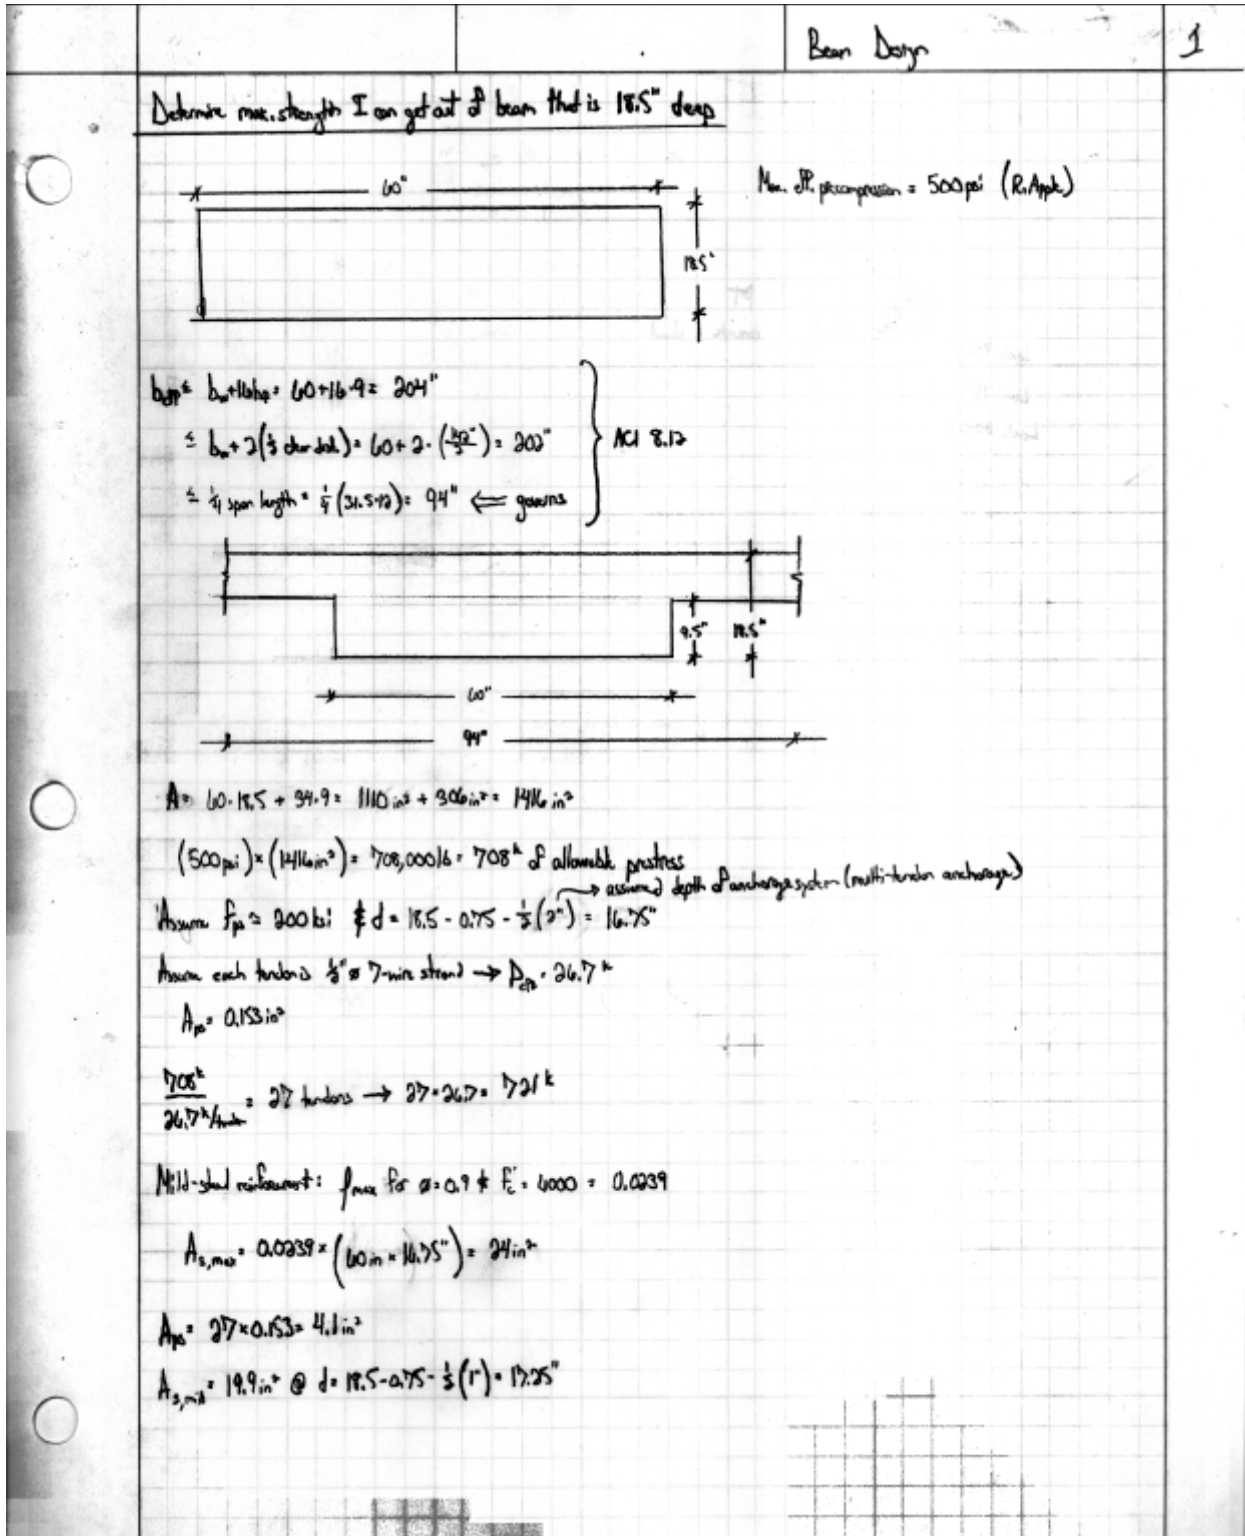 Beam Design
1
Determine max. strength I can get out of beam that is 18.5" deep
60"
Max. eff. precompression = 500 psi (R. Apple)
18.5"
b_eff ≤ b_w+16h_f = 60+16·9 = 204"
≤ b_w + 2(½ clear dist.) = 60 + 2·( ) = 202"
ACI 8.12
≤ ¼ span length = ¼(31.5·12) = 94" ⇐ governs
9.5"
18.5"
60"
94"
A = 60·18.5 + 34·9 = 1110 in² + 306 in² = 1416 in²
(500 psi) × (1416 in²) = 708,000 lb = 708ᵏ of allowable prestress
→ assumed depth of anchorage system (multi-tendon anchorage)
Assume f_ps ≈ 200 ksi & d = 18.5 - 0.75 - ½(2") = 16.75"
Assume each tendon is ½" ø 7-wire strand → P_eff = 26.7ᵏ
A_ps = 0.153 in²
708ᵏ
26.7ᵏ/tendon
= 27 tendons → 27×26.7 = 721ᵏ
Mild-steel reinforcement: ρ_max for ø=0.9 & f'_c = 6000 = 0.0239
A_s,max = 0.0239 × (60 in × 16.75") = 24 in²
A_ps = 27×0.153 = 4.1 in²
A_s,mild = 19.9 in² @ d = 18.5-0.75-½(1") = 17.25"